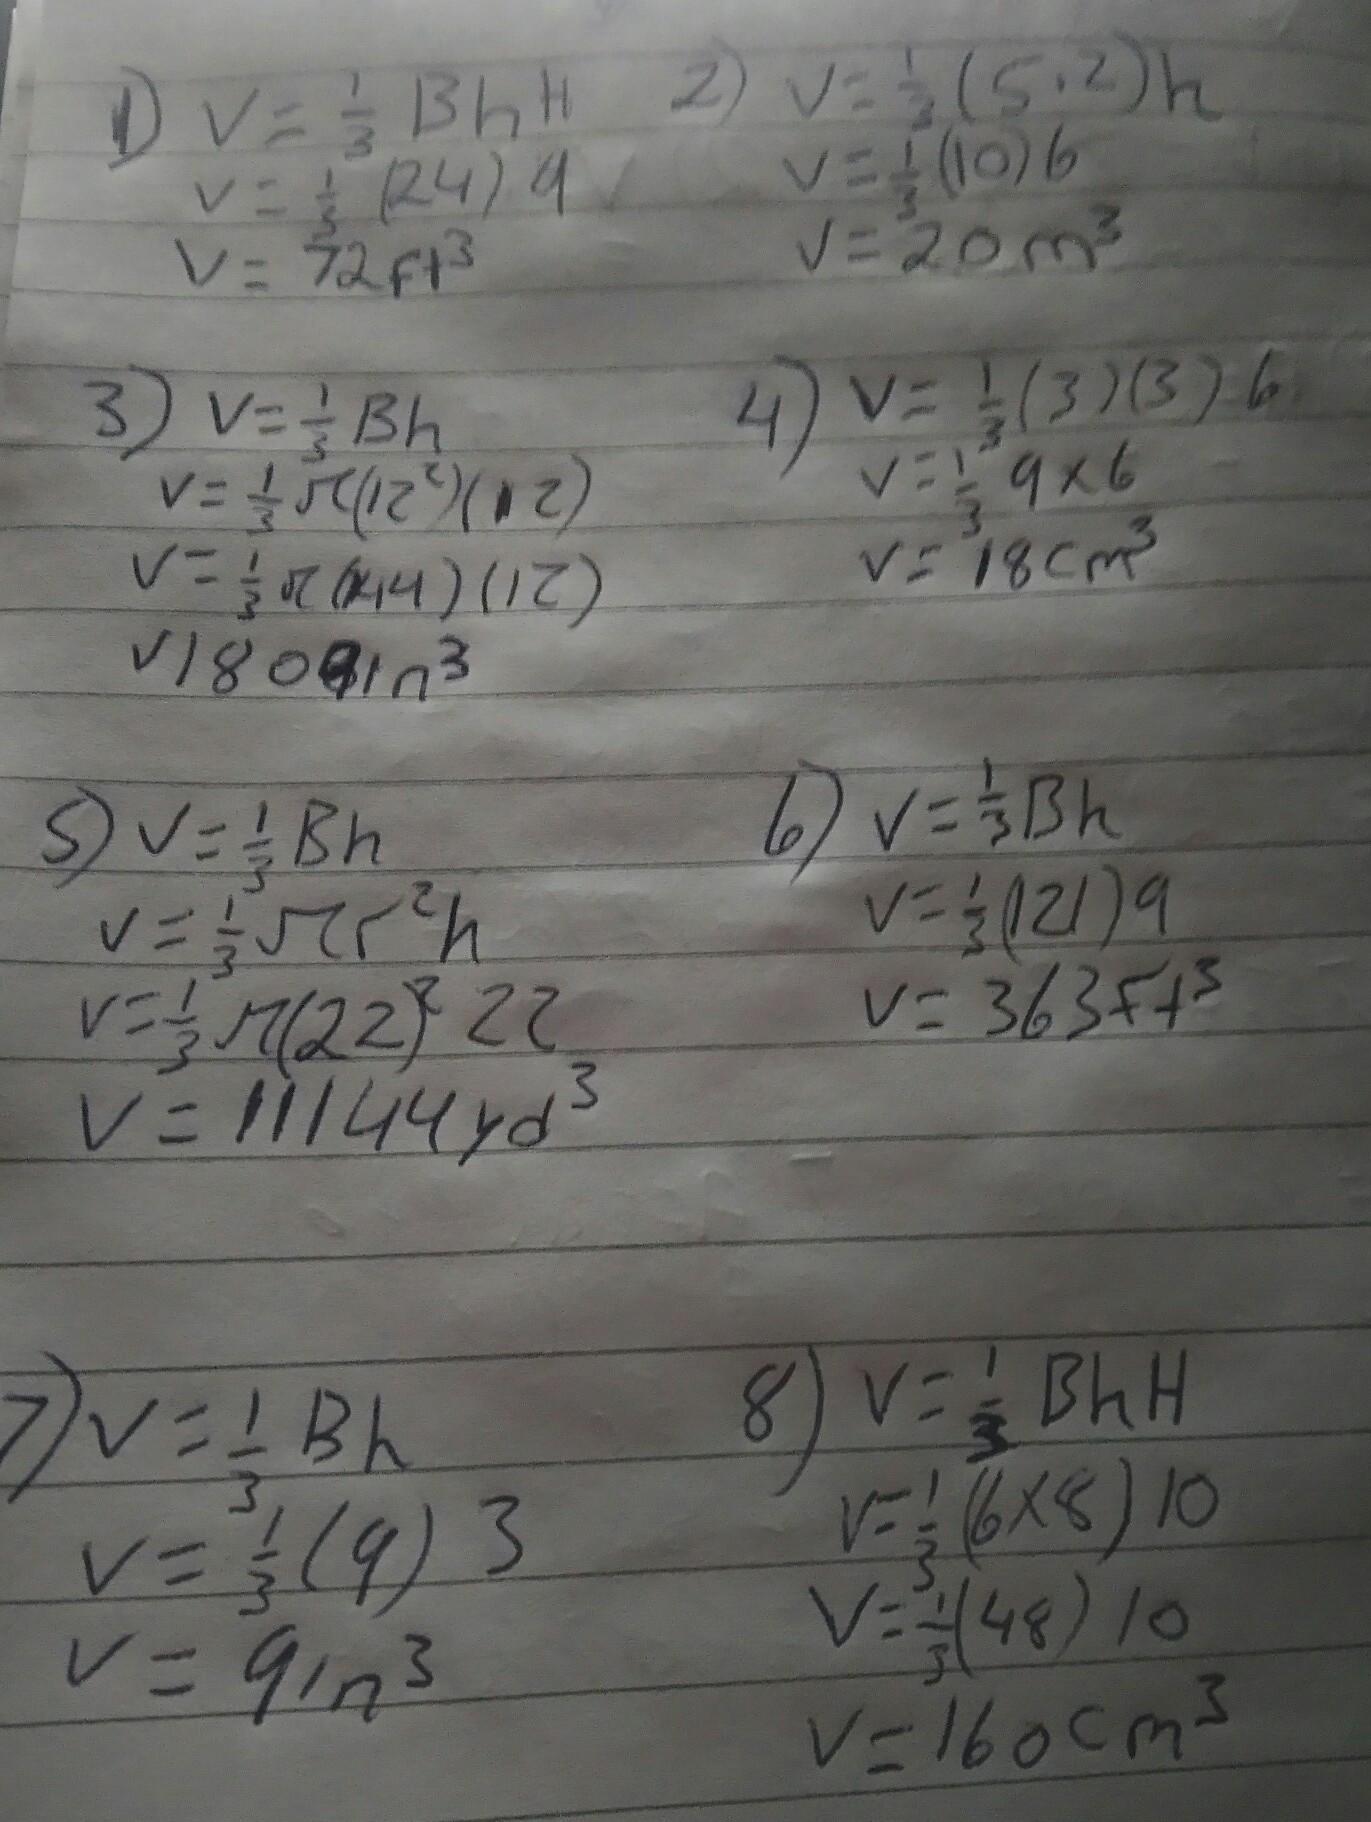 1) V = 1/3 BhH
V = 1/3 (24) 9
V = 72ft³
2) V = 1/3 (5·2)h
V = 1/3 (10) 6
V = 20m³
3) V = 1/3 Bh
V = 1/3 π(12²)(12)
V = 1/3 π(144)(12)
V 1809in³
4) V = 1/3 (3)(3) 6
V = 1/3 9x6
V = 18cm³
5) V = 1/3 Bh
V = 1/3 πr²h
V = 1/3 π(22)² 22
V = 11144yd³
6) V = 1/3 Bh
V = 1/3 (121) 9
V = 363ft³
7) V = 1/3 Bh
V = 1/3 (9) 3
V = 9in³
8) V = 1/3 BhH
V = 1/3 (6x8) 10
V = 1/3 (48) 10
V = 160cm³